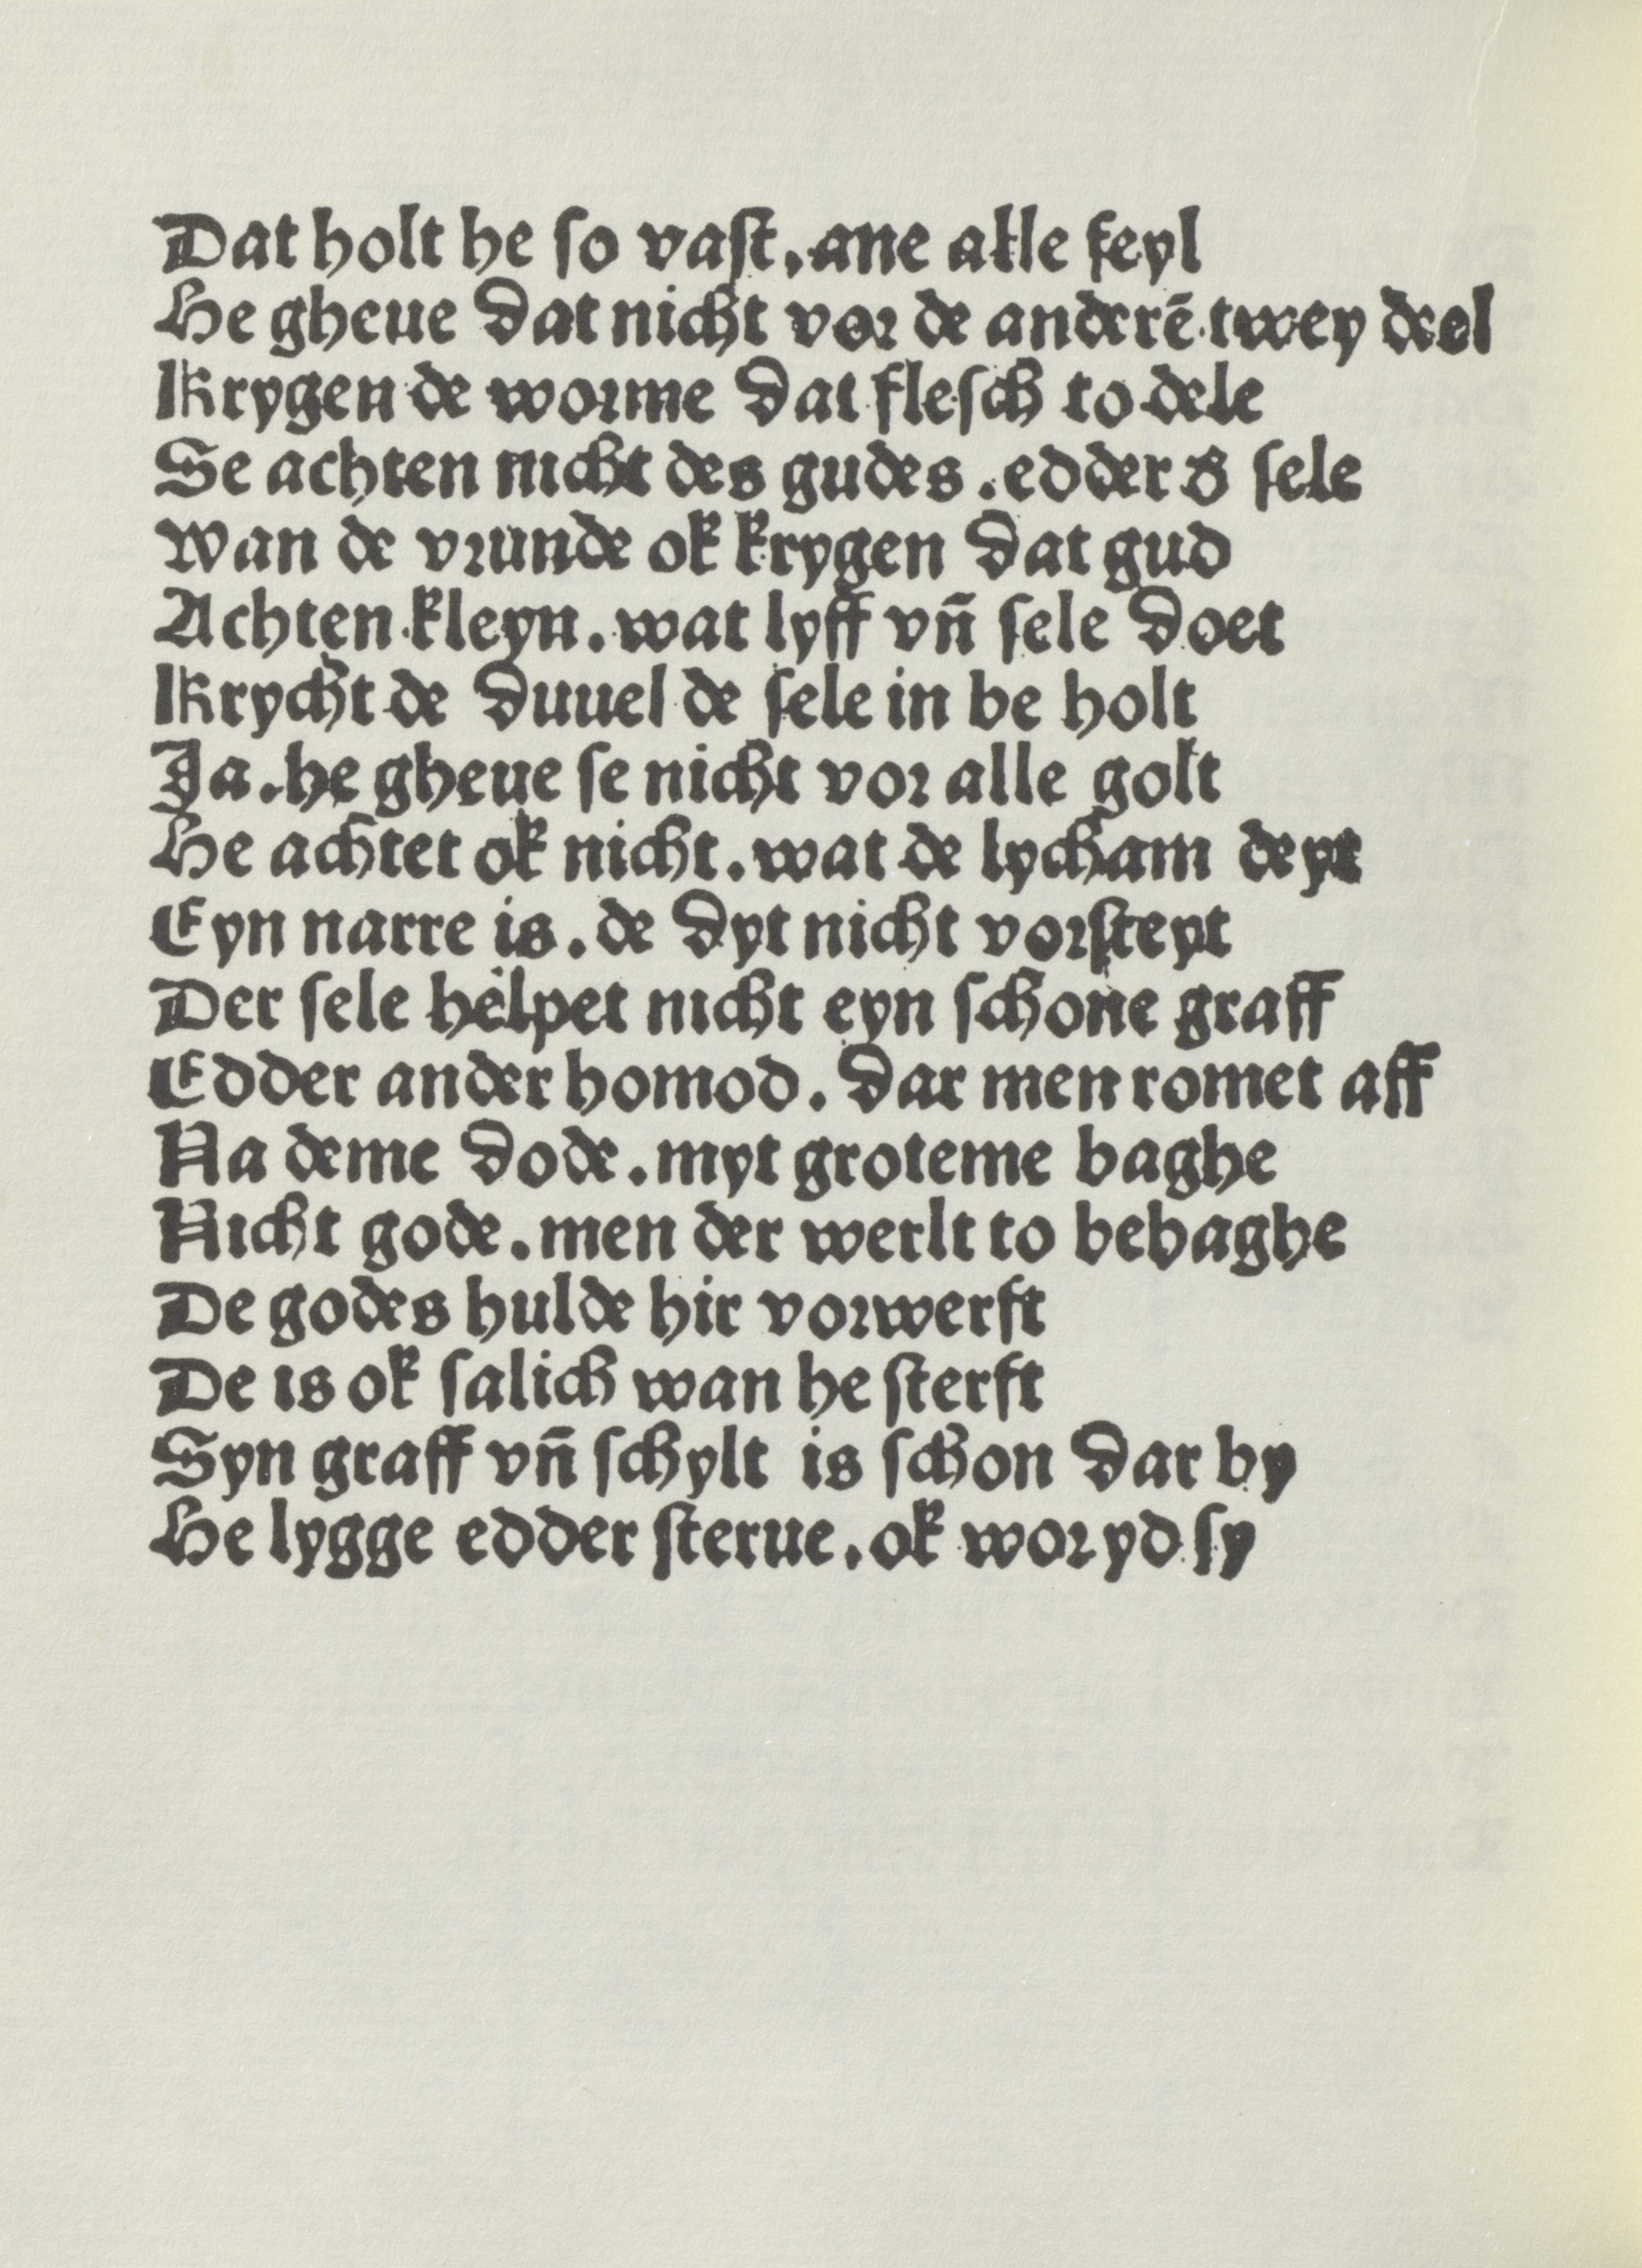 Dat holt he ſo vaſt. ane alle feyl
He gheue dat nicht voꝛ de anderē twey deel
Krygen de woꝛme dat fleſch to dele
Se achten nicht des gudes. edder ð ſele
Wan de vꝛunde ok krygen dat gud
Achten kleyn. wat lyff vn̄ ſele doet
Krycht de duuel de ſele in be holt
Ja. he gheue ſe nicht voꝛ alle golt
He achtet ok nicht. wat de lycham deyt
Eyn narre is. de dyt nicht voꝛſteyt
Der ſele helpet nicht eyn ſchone graff
Edder ander homod. dar men romet aff
Na deme dode. myt groteme baghe
Nicht gode. men der werlt to behaghe
De godes hulde hir voꝛwerft
De is ok ſalich wan he ſterft
Syn graff vn̄ ſchylt is ſchon dar by
He lygge edder ſterue. ok woꝛ yd ſy